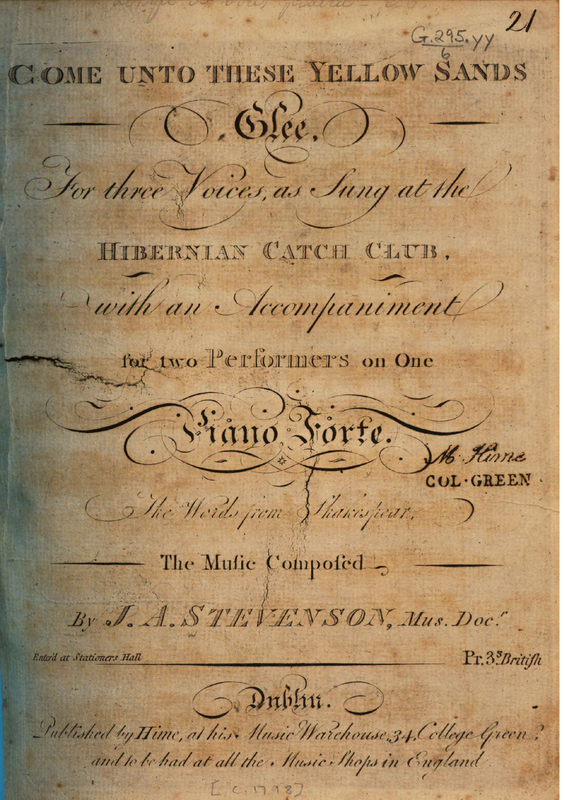 21
G.295.yy
6
COME UNTO THESE YELLOW SANDS
Glee.
For three Voices, as Sung at the
HIBERNIAN CATCH CLUB,
with an Accompaniment
for two Performers on One
Piano Forte.
M. Hime
COL·GREEN
The Words from Shakespear,
The Muſic Compoſed
By J. A. STEVENSON, Mus. Doc.r
Enter'd at Stationers Hall
Pr. 3s British
Dublin.
Published by Hime, at his Music Warehouse, 34, College Green.
and to be had at all the Music Shops in England
[c. 1798]